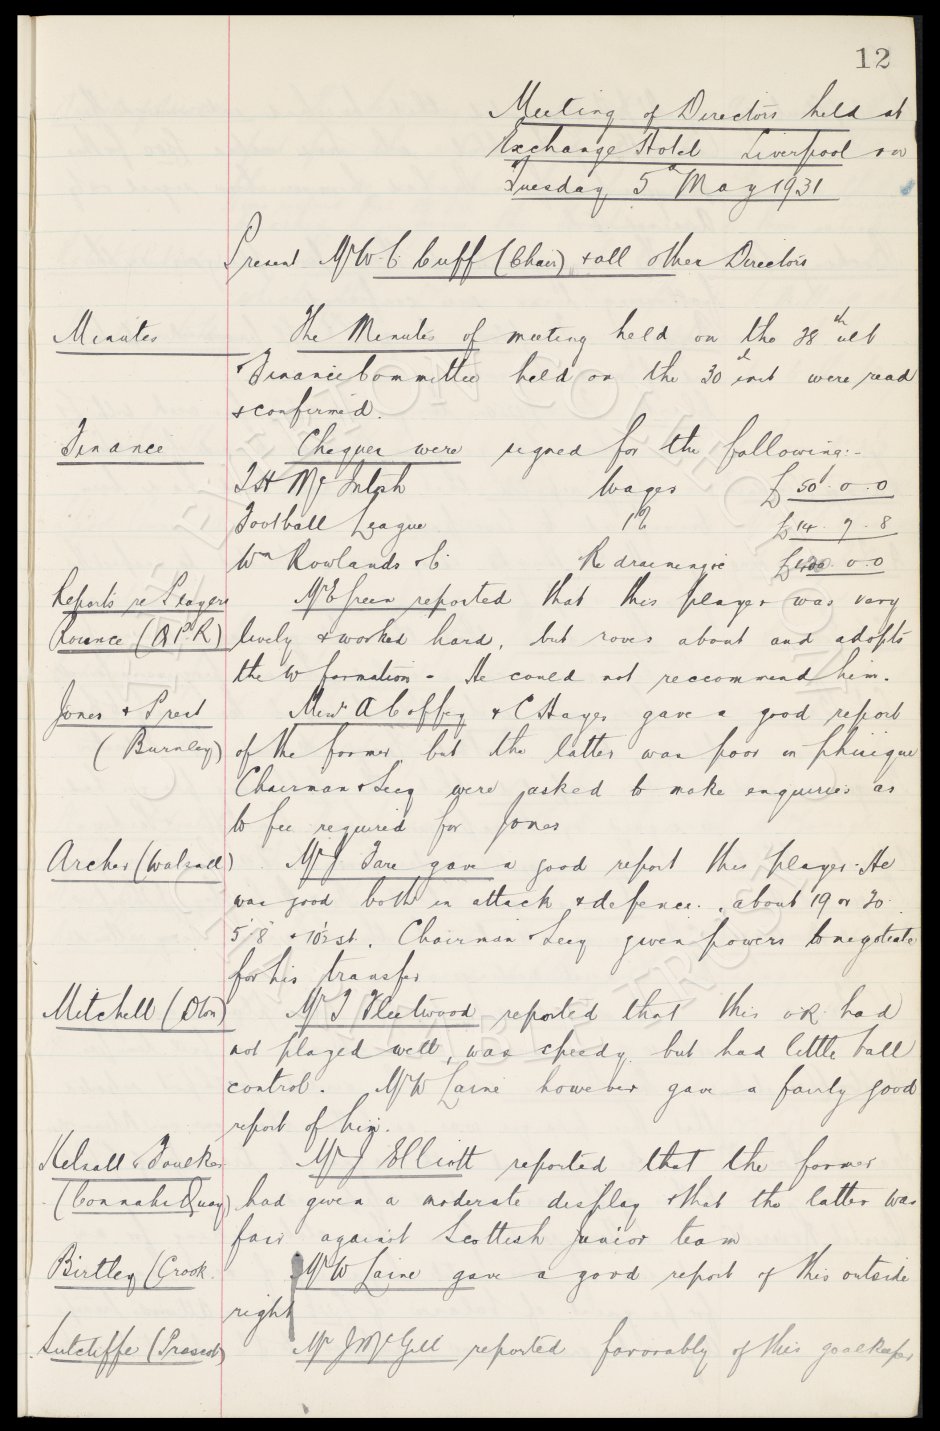 12
Meeting of Directors held at
Exchange Hotel Liverpool on
Tuesday 5th May 1931
Present Mr W.C. Cuff (Chair) & all other Directors
Minutes The Minutes of meeting held on the 28th ult
& Finance Committee held on the 30th inst were read
& confirmed.
Finance Cheques were signed for the following:-
T H McIntosh Wages £ 50. 0. 0
Football League 1% £ 14. 9. 8
Wm Rowlands & Co Re draining £ 0. 0
Reports re Players Mr E Green reported that this player was very
Rounce (Q P R) lively & worked hard, but roves about and adopts
the W formation - He could not reccommend him.
Jones & Prest Messrs A Coffey & C S Hayes gave a good report
(Burnley) of the former but the latter was poor in phisique
Chairman & Secy were asked to make enquiries as
to fee required for Jones
Archer (Walsall) Mr J Fare gave a good report this player. He
was good both in attack & defence. about 19 or 20.
5'8" & 10½st. Chairman & Secy given powers to negotiate
for his transfer
Mitchell (Oton) Mr T Fleetwood reported that this o R had
not played well, was speedy but had little ball
control. Mr W Laine however gave a fairly good
report of him.
Kelsall & Foulkes Mr J Elliott reported that the former
(Connahs Quay) had given a moderate display & that the latter was
fair against Scottish Junior team
Birtley (Crook Mr W Laine gave a good report of this outside
right
Sutcliffe (Prescot) Mr J McGill reported favorably of this goalkeeper